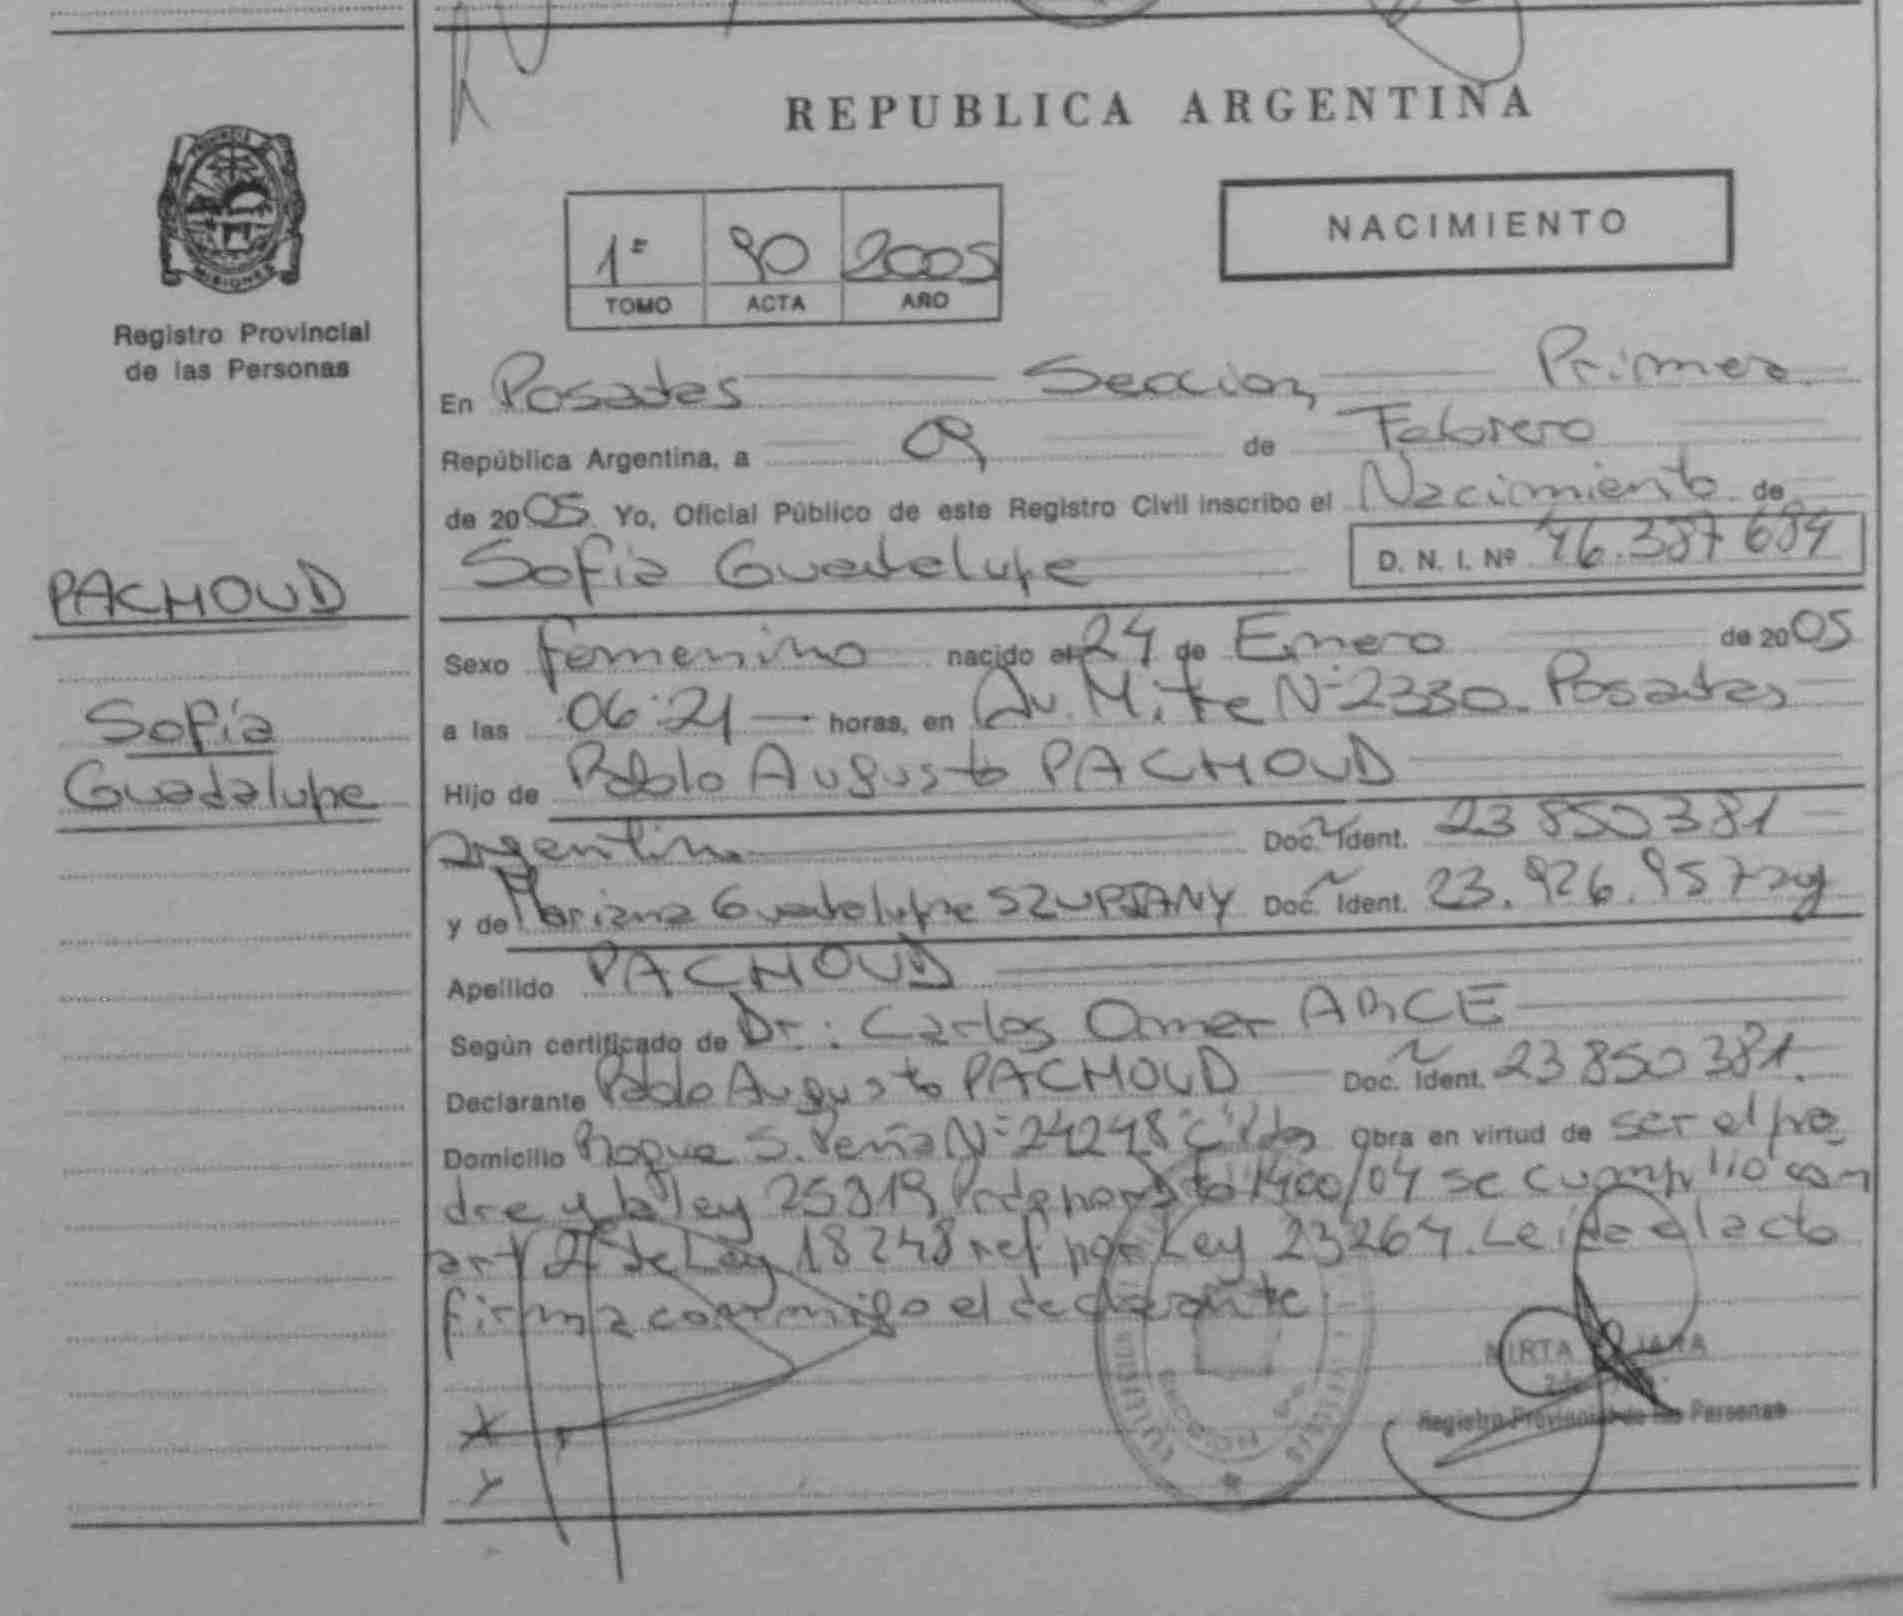 REPUBLICA ARGENTINA
NACIMIENTO
1º 90 2005
TOMO ACTA AÑO
Registro Provincial
de las Personas
En Posadas Seccion Primera
República Argentina, a 09 de Febrero
de 2005 Yo, Oficial Público de este Registro Civil inscribo el Nacimiento de
Sofía Guadalupe D. N. I. Nº 46.387 684
PACHOUD
Sofía
Guadalupe
Sexo femenino nacido el 24 de Enero de 2005
a las 06:21 horas, en Av. Mitre Nº 2330. Posadas
Hijo de Pablo Augusto PACHOUD
argentino Doc. Ident. 23 850 381
y de Mariana Guadalupe SZUPIANY Doc. Ident. 23.926.957
Apellido PACHOUD
Según certificado de Dr.: Carlos Omar ARCE
Declarante Pablo Augusto PACHOUD Doc. Ident. 23 850 381.
Domicilio Roque S. Peña Nº Obra en virtud de ser el pa
dre y la ley 1400/04 se cumplio con
art 2 de Ley 18248 ref. por Ley 23264. Leída el acta
firma conmigo el declarante
MIRTA
Registro Provincial de las Personas